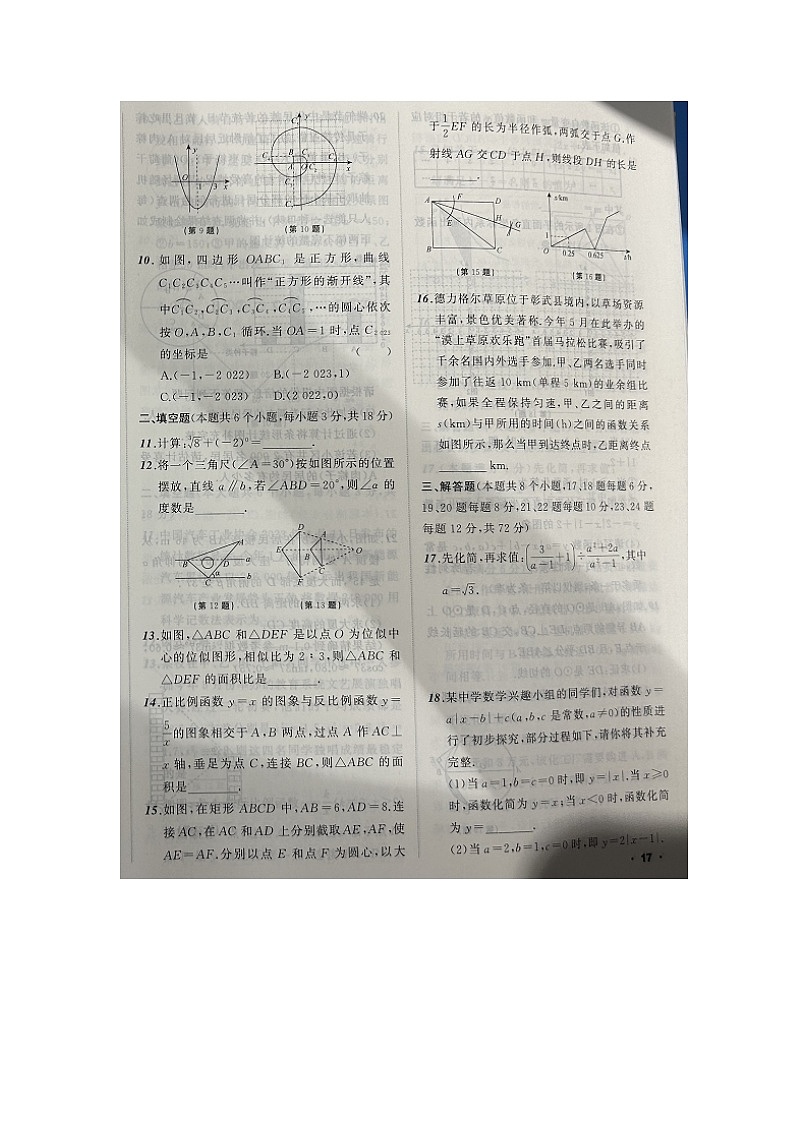 (第 9 题)
(第 10 题)
10. 如图,四边形 OABC₁ 是正方形,曲线
C₁C₂C₃C₄C₅…叫作“正方形的渐开线”,其
中C₁C₂,C₂C₃,C₃C₄,C₄C₅,…的圆心依次
按 O,A,B,C₁ 循环.当 OA=1 时,点 C₂ ₀₂₃
的坐标是 ( )
A.(-1,-2 022) B.(-2 023,1)
C.(-1,-2 023) D.(2 022,0)
二、填空题(本题共 6 个小题,每小题 3 分,共 18 分)
11. 计算:∛8+(-2)⁰= .
12. 将一个三角尺(∠A=30°)按如图所示的位置
摆放,直线 a∥b,若∠ABD=20°,则∠α 的
度数是 .
(第 12 题)
(第 13 题)
13. 如图,△ABC 和△DEF 是以点 O 为位似中
心的位似图形,相似比为 2∶3,则△ABC 和
△DEF 的面积比是 .
14. 正比例函数 y=x 的图象与反比例函数 y=
5/x 的图象相交于 A,B 两点,过点 A 作 AC⊥
x 轴,垂足为点 C,连接 BC,则△ABC 的面
积是 .
15. 如图,在矩形 ABCD 中,AB=6,AD=8.连
接 AC,在 AC 和 AD 上分别截取 AE,AF,使
AE=AF.分别以点 E 和点 F 为圆心,以大
于 1/2 EF 的长为半径作弧,两弧交于点 G.作
射线 AG 交 CD 于点 H,则线段 DH 的长是
.
A F D
E H G
B C
(第 15 题)
s/km
1
O 0.25 0.625 t/h
(第 16 题)
16. 德力格尔草原位于彰武县境内,以草场资源
丰富,景色优美著称.今年 5 月在此举办的
“漠上草原欢乐跑”首届马拉松比赛,吸引了
千余名国内外选手参加.甲、乙两名选手同时
参加了往返 10 km(单程 5 km)的业余组比
赛,如果全程保持匀速,甲、乙之间的距离
s(km)与甲所用的时间(h)之间的函数关系
如图所示,那么当甲到达终点时,乙距离终点
km.
三、解答题(本题共 8 个小题,17、18 题每题 6 分,
19、20 题每题 8 分,21、22 题每题 10 分,23、24 题
每题 12 分,共 72 分)
17. 先化简,再求值:(3/(a-1)+1)÷(a+2a)/(a²-1),其中
a=√3.
18. 某中学数学兴趣小组的同学们,对函数 y=
a|x-b|+c(a,b,c 是常数,a≠0)的性质进
行了初步探究,部分过程如下,请你将其补充
完整.
(1)当 a=1,b=c=0 时,即 y=|x|.当 x≥0
时,函数化简为 y=x;当 x<0 时,函数化简
为 y= .
(2)当 a=2,b=1,c=0 时,即 y=2|x-1|.
· 17 ·